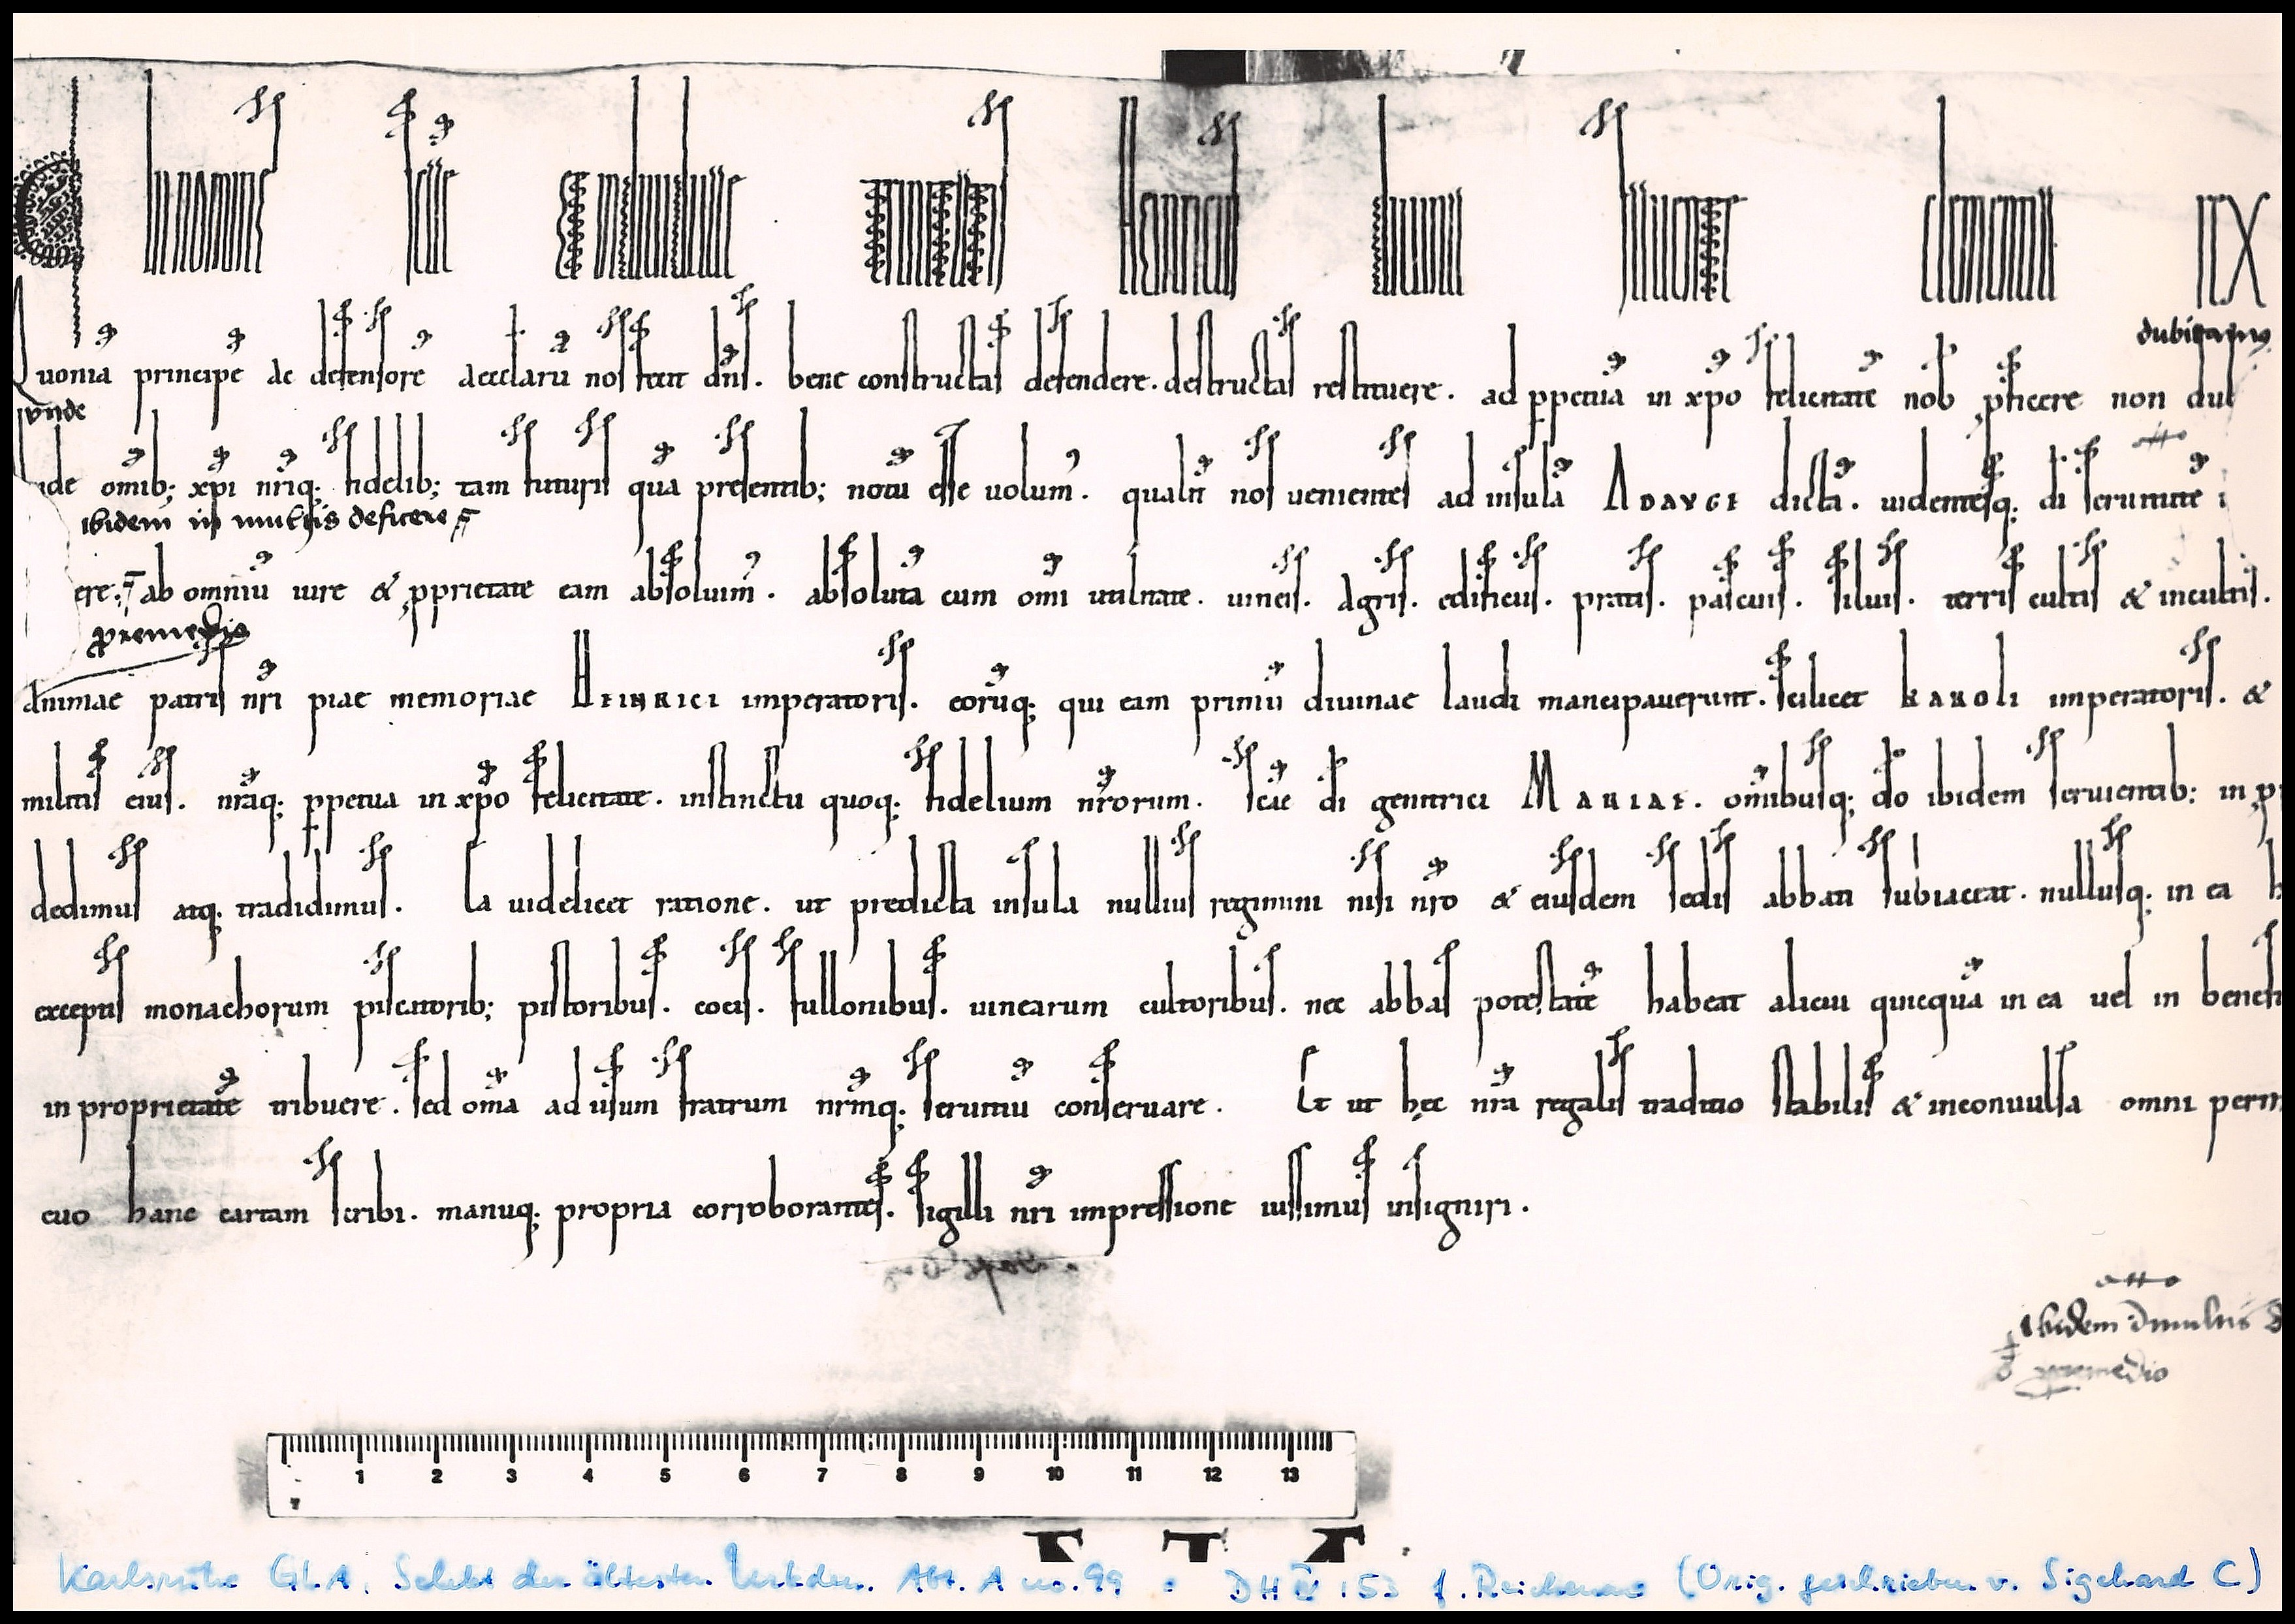 In nomine sanctę et individuę trinitatis Heinricus divina favente clementia rex
dubitamus
Quoniā principē ac defensorē aecclarū nos fecit dn̄s. bene constructas defendere. destructas restituere. ad ppetuā in xp̄o felicitatē nob pficere non dub
unde
unde om̄ib; xp̄i nr̄iq; fidelib; tam futuris quā presentib; notū esse volum'. qualit̄ nos venientes ad insulā Adavgi dictā. videntesq; di servitutē i
ibidem in multis deficere
ere. ab omniū iure & pprietate eam absolvim'. absolutā cum om̄i utilitate. vineis. agris. edificiis. pratis. pascuis. silvis. terris cultis & incultis.
pro remedio
animae patris nr̄i piae memoriae Heinrici imperatoris. eorūq; qui eam primū divinae laudi mancipaverunt. scilicet Karoli imperatoris. &
militis eius. nr̄aq; ppetua in xp̄o felicitate. instinctu quoq; fidelium nr̄orum. scāe di genitrici Mariae. om̄ibusq; dō ibidem servientib; in p
dedimus atq; tradidimus. Ea videlicet ratione. ut predicta insula nullius regimini nisi nr̄o & eiusdem sedis abbati subiaceat. nullusq; in ea h
exceptis monachorum piscatorib; pistoribus. cocis. fullonibus. vinearum cultoribus. nec abbas potestatē habeat alicui quicquā in ea vel in benefi
in proprietatē tribuere. sed om̄a ad usum fratrum nr̄mq; servitiū conservare. Et ut hęc nr̄a regalis traditio stabilis & inconvulsa omni perm
evo hanc cartam scribi. manuq; propria corroborantes. sigilli nr̄i impressione iussimus insigniri.
otto
ibidem in multis d
pro remedio
1 2 3 4 5 6 7 8 9 10 11 12 13
Karlsruhe GLA, Selekt der ältesten Urkden. Abt. A no. 99 = DH IV 153 f. Reichenau (Orig. geschrieben v. Sigehard C)